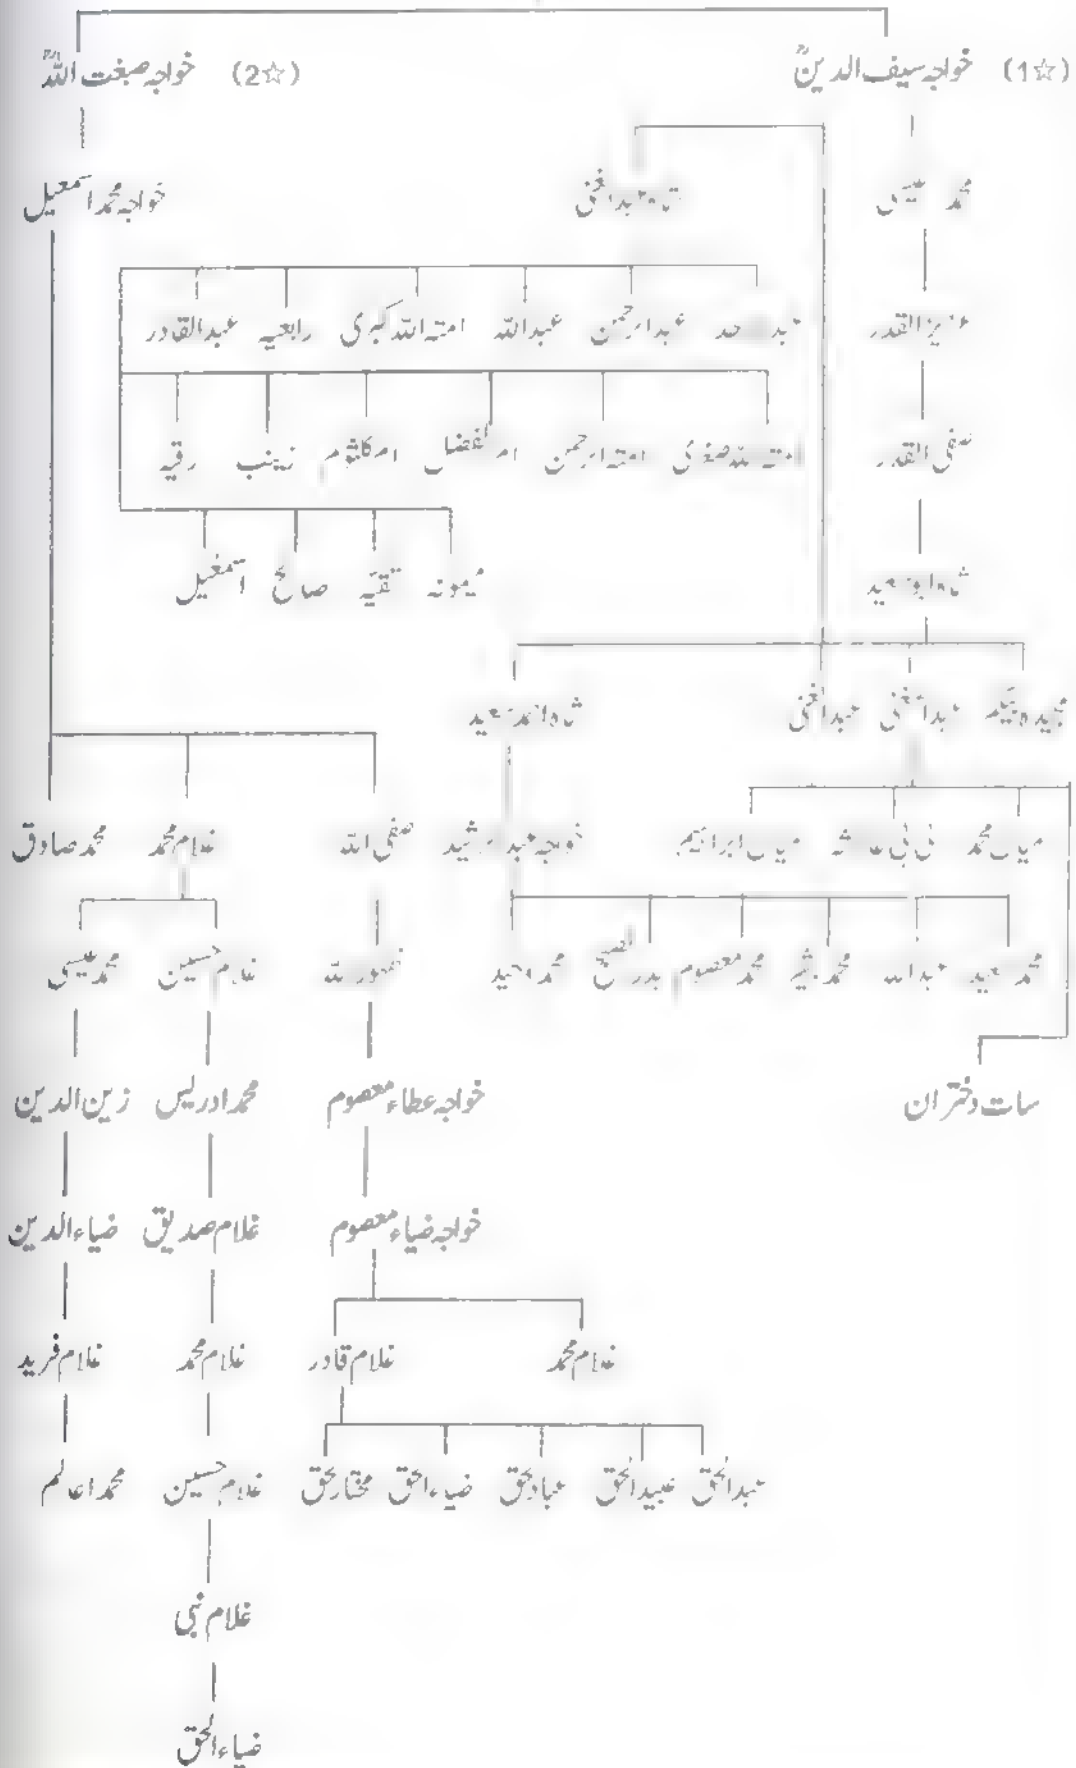 (☆1) خواجہ سیف الدینؒ (☆2) خواجہ صبغت اللہؒ
محمد عیسی شاہ عبدالغنی خواجہ محمد اسمعیل
عزیز القدر عبدالرحمن عبداللہ امتہ اللہ کبری رابعیہ عبدالقادر
صفی القدر امتہ اللہ صغری امتہ الرحمن ام الفضل ام کلثوم زینب رقیہ
شاہ ابو سعید میمونہ تقیّہ صالح اسمعیل
عبدالغنی عبدالغنی شاہ احمد سعید
میاں محمد بی بی عائشہ میاں ابراہیم خواجہ عبدالرشید صفی اللہ غلام محمد محمد صادق
محمد سعید عبداللہ محمد معصوم محمد وحید غلام حسین محمد عیسی
سات دختران خواجہ عطاء معصوم محمد ادریس زین الدین
خواجہ ضیاء معصوم غلام صدیق ضیاء الدین
غلام محمد غلام قادر غلام محمد غلام فرید
عبدالحق عبیدالحق عبادالحق ضیاءالحق مختارالحق غلام حسین محمد اعالم
غلام نبی
ضیاءالحق